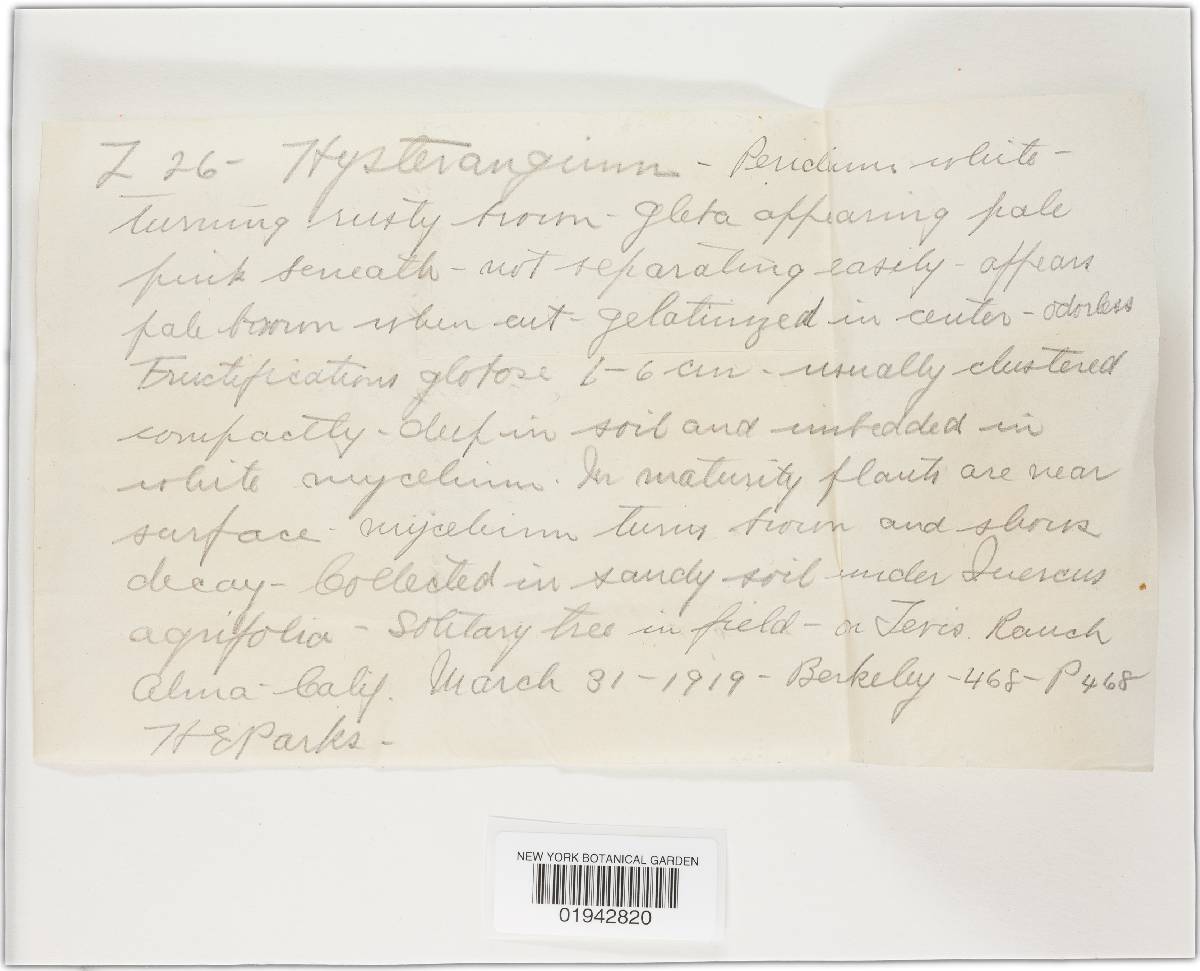 Z 26 - Hysterangium - Peridium white -
turning rusty brown - Gleba appearing pale
pink beneath - not separating easily - appears
pale brown when cut - gelatinized in center - odorless
Fructifications globose 1-6 cm - usually clustered
compactly - deep in soil and imbedded in
white mycelium. In maturity plants are near
surface - mycelium turns brown and shows
decay - Collected in sandy soil under Quercus
agrifolia - Solitary tree in field - on Tevis Ranch
Alma - Calif. March 31 - 1919 - Berkeley - 468 - P 468
H E Parks -
NEW YORK BOTANICAL GARDEN
01942820